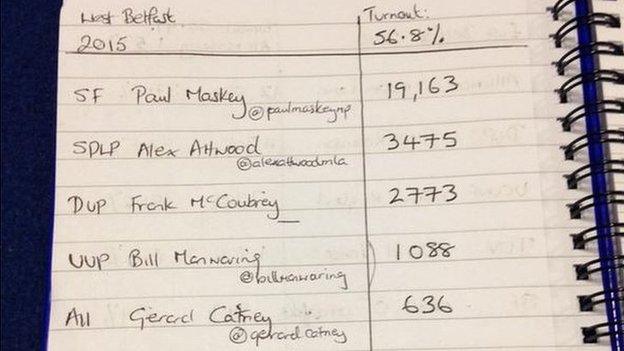 West Belfast Turnout:
2015 56.8%
SF Paul Maskey 19,163
@paulmaskeymp
SDLP Alex Attwood 3475
@alexattwoodmla
DUP Frank McCoubrey 2773
UUP Bill Manwaring 1088
@billmanwaring
All Gerard Catney 636
@gerardcatney